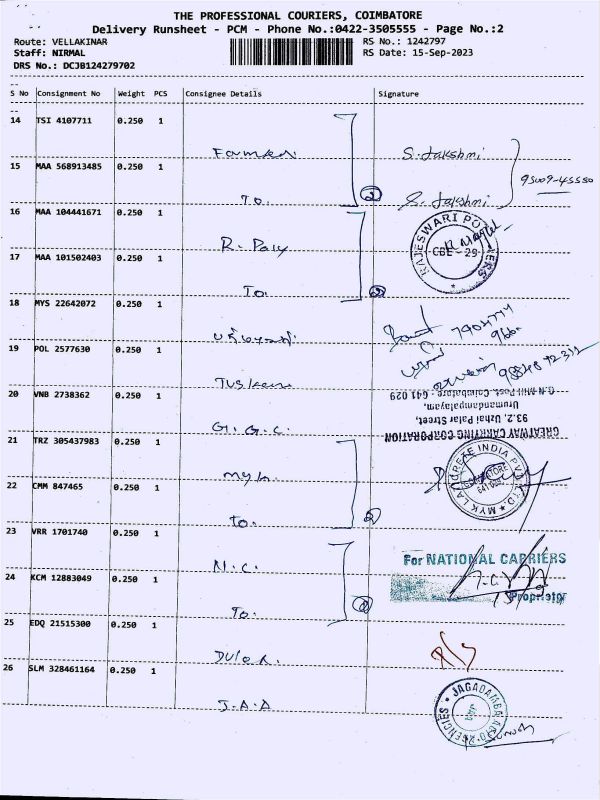 THE PROFESSIONAL COURIERS, COIMBATORE
Delivery Runsheet - PCM - Phone No.:0422-3505555 - Page No.:2
Route: VELLAKINAR
RS No.: 1242797
Staff: NIRMAL
RS Date: 15-Sep-2023
DRS No.: DCJB124279702
S No Consignment No Weight PCS Consignee Details Signature
14 TSI 4107711 0.250 1
S. Lakshmi
15 MAA 568913485 0.250 1
95009-45550
To. 2 S. Lakshmi
16 MAA 104441671 0.250 1
R. Poly
RAJESWARI POLYMERS
CBE - 29
17 MAA 101502403 0.250 1
To. 2
18 MYS 22642072 0.250 1
19 POL 2577630 0.250 1
20 VNB 2738362 0.250 1
G.G.C.
GREATWAY CARRYING CORPORATION
93.2, Uzhai Palar Street,
Urumandampalayam,
G.N.Mill Post, Coimbatore - 641 029
21 TRZ 305437983 0.250 1
myk
MYK LATICRETE INDIA PVT. LTD.
COIMBATORE
22 CMM 847465 0.250 1
To. 2
23 VRR 1701740 0.250 1
N.C.
For NATIONAL CARRIERS
Proprietor
24 KCM 12883049 0.250 1
To. 2
25 EDQ 21515300 0.250 1
26 SLM 328461164 0.250 1
J.A.A
JAGADAMBA AGENCIES